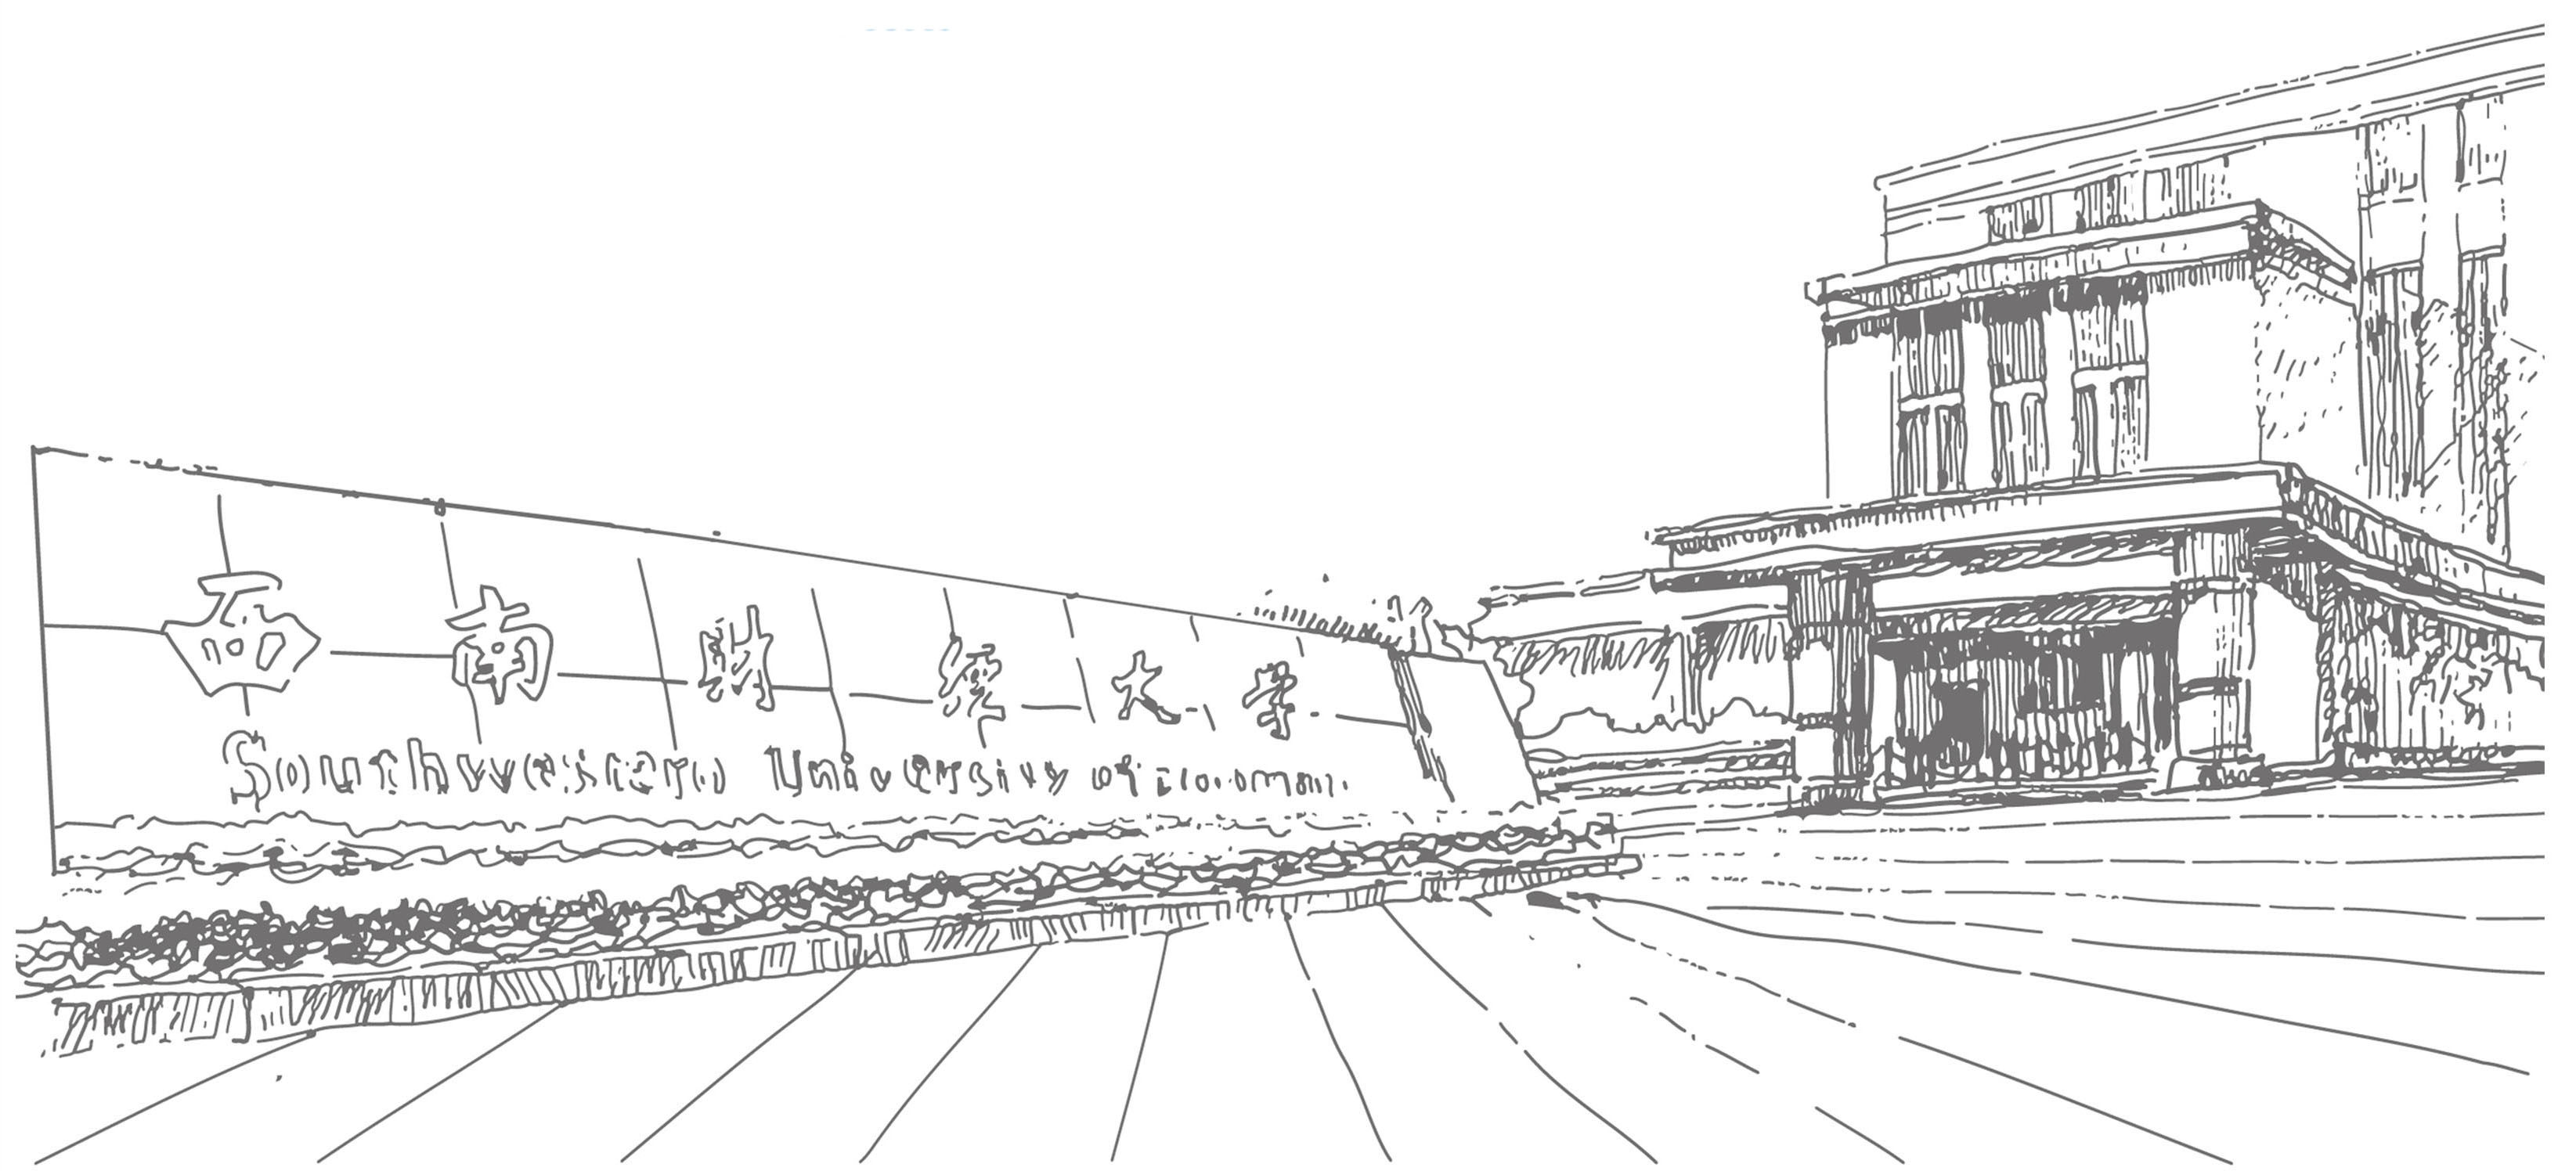 西南财经大学
Southwestern University of